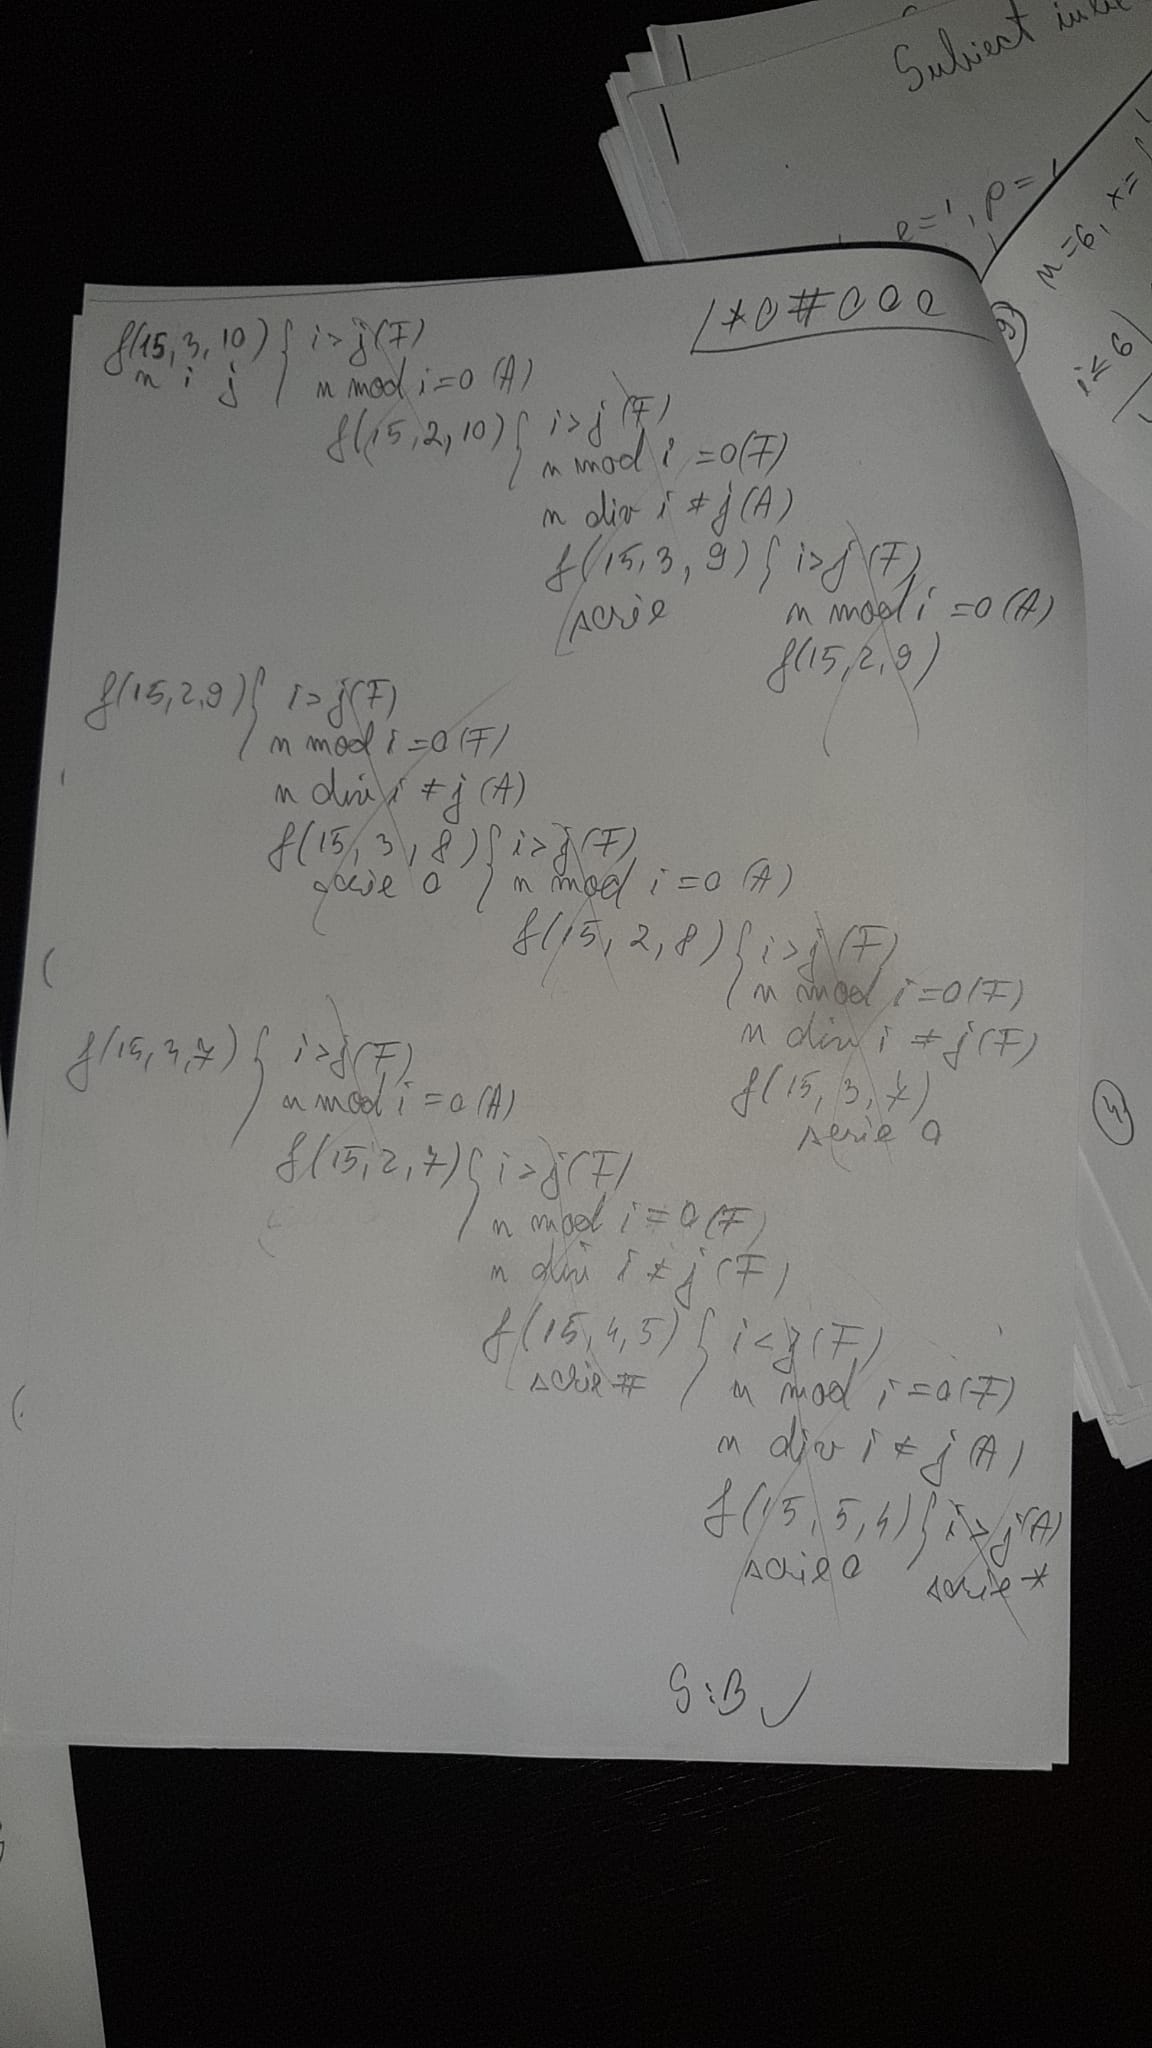 Subiect
e=1, p=1
n=6, x=
i≤6
9)
1*0#000
f(15,3,10) { i>j(F)
n i j
n mod i=0 (A)
f(15,2,10) { i>j (F)
n mod i =0(F)
n div i ≠ j(A)
f(15,3,9) { i>j (F)
scrie
n mod i =0(A)
f(15,2,9)
f(15,2,9) { i>j(F)
n mod i=0(F)
n div i ≠ j (A)
f(15,3,8) { i>j(F)
scrie 0
n mod i=0 (A)
f(15,2,8) { i>j (F)
n mod i=0(F)
n div i ≠ j(F)
f(15,3,7)
scrie 0
4)
f(15,3,7) { i>j(F)
n mod i=0(A)
f(15,2,7) { i>j(F)
n mod i=0(F)
n div i ≠ j (F)
f(15,4,5) { i<j(F)
scrie #
n mod i=0(F)
n div i ≠ j (A)
f(15,5,4) { i>j(A)
scrie 0
scrie *
S:B ✓